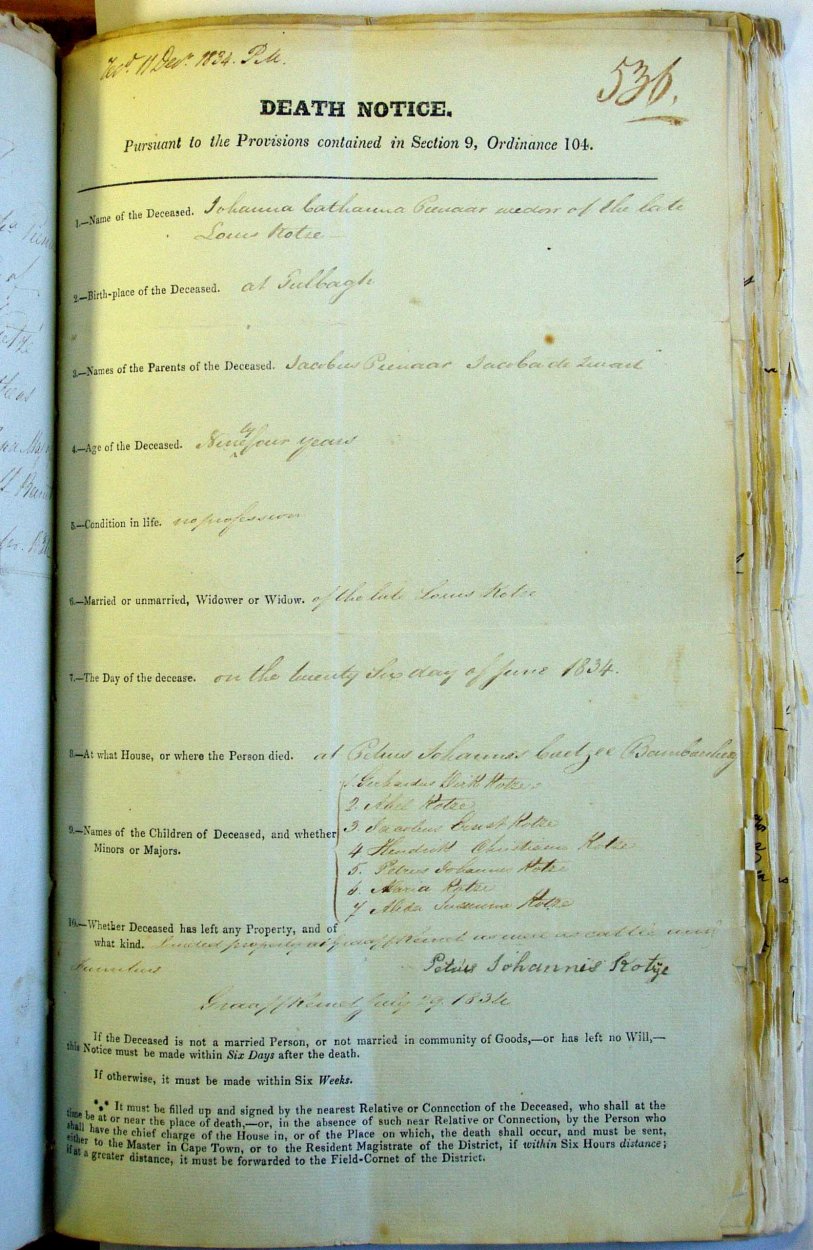 Recd. 11 Decr. 1834. P.M.
536.
DEATH NOTICE.
Pursuant to the Provisions contained in Section 9, Ordinance 104.
1.—Name of the Deceased. Johanna Catharina Pienaar wedow of the late
Louis Kotze —
2.—Birth-place of the Deceased. at Tulbagh
3.—Names of the Parents of the Deceased. Jacobus Pienaar Jacoba de Zwart
4.—Age of the Deceased. Ninety four years
5.—Condition in life. no profession
6.—Married or unmarried, Widower or Widow. of the late Louis Kotze
7.—The Day of the decease. on the twenty Six day of June 1834.
8.—At what House, or where the Person died. at Petrus Johannes Coetzee
9.—Names of the Children of Deceased, and whether Minors or Majors.
1. Gerhardus Dirk Kotze
2. Abel Kotze
3 Jacobus Ernst Kotze
4 Hendrik Christiaan Kotze
5. Petrus Johannes Kotze
6. Maria Kotze
7 Alida Susanna Kotze
10.—Whether Deceased has left any Property, and of
what kind. Landed property at Graaff Reinet as well as cattle and
Petrus Johannis Kotze
Graaff Reinet July 29 1834
If the Deceased is not a married Person, or not married in community of Goods,—or has left no Will,—
this Notice must be made within Six Days after the death.
If otherwise, it must be made within Six Weeks.
*** It must be filled up and signed by the nearest Relative or Connection of the Deceased, who shall at the
time be at or near the place of death,—or, in the absence of such near Relative or Connection, by the Person who
shall have the chief charge of the House in, or of the Place on which, the death shall occur, and must be sent,
either to the Master in Cape Town, or to the Resident Magistrate of the District, if within Six Hours distance;
if at a greater distance, it must be forwarded to the Field-Cornet of the District.